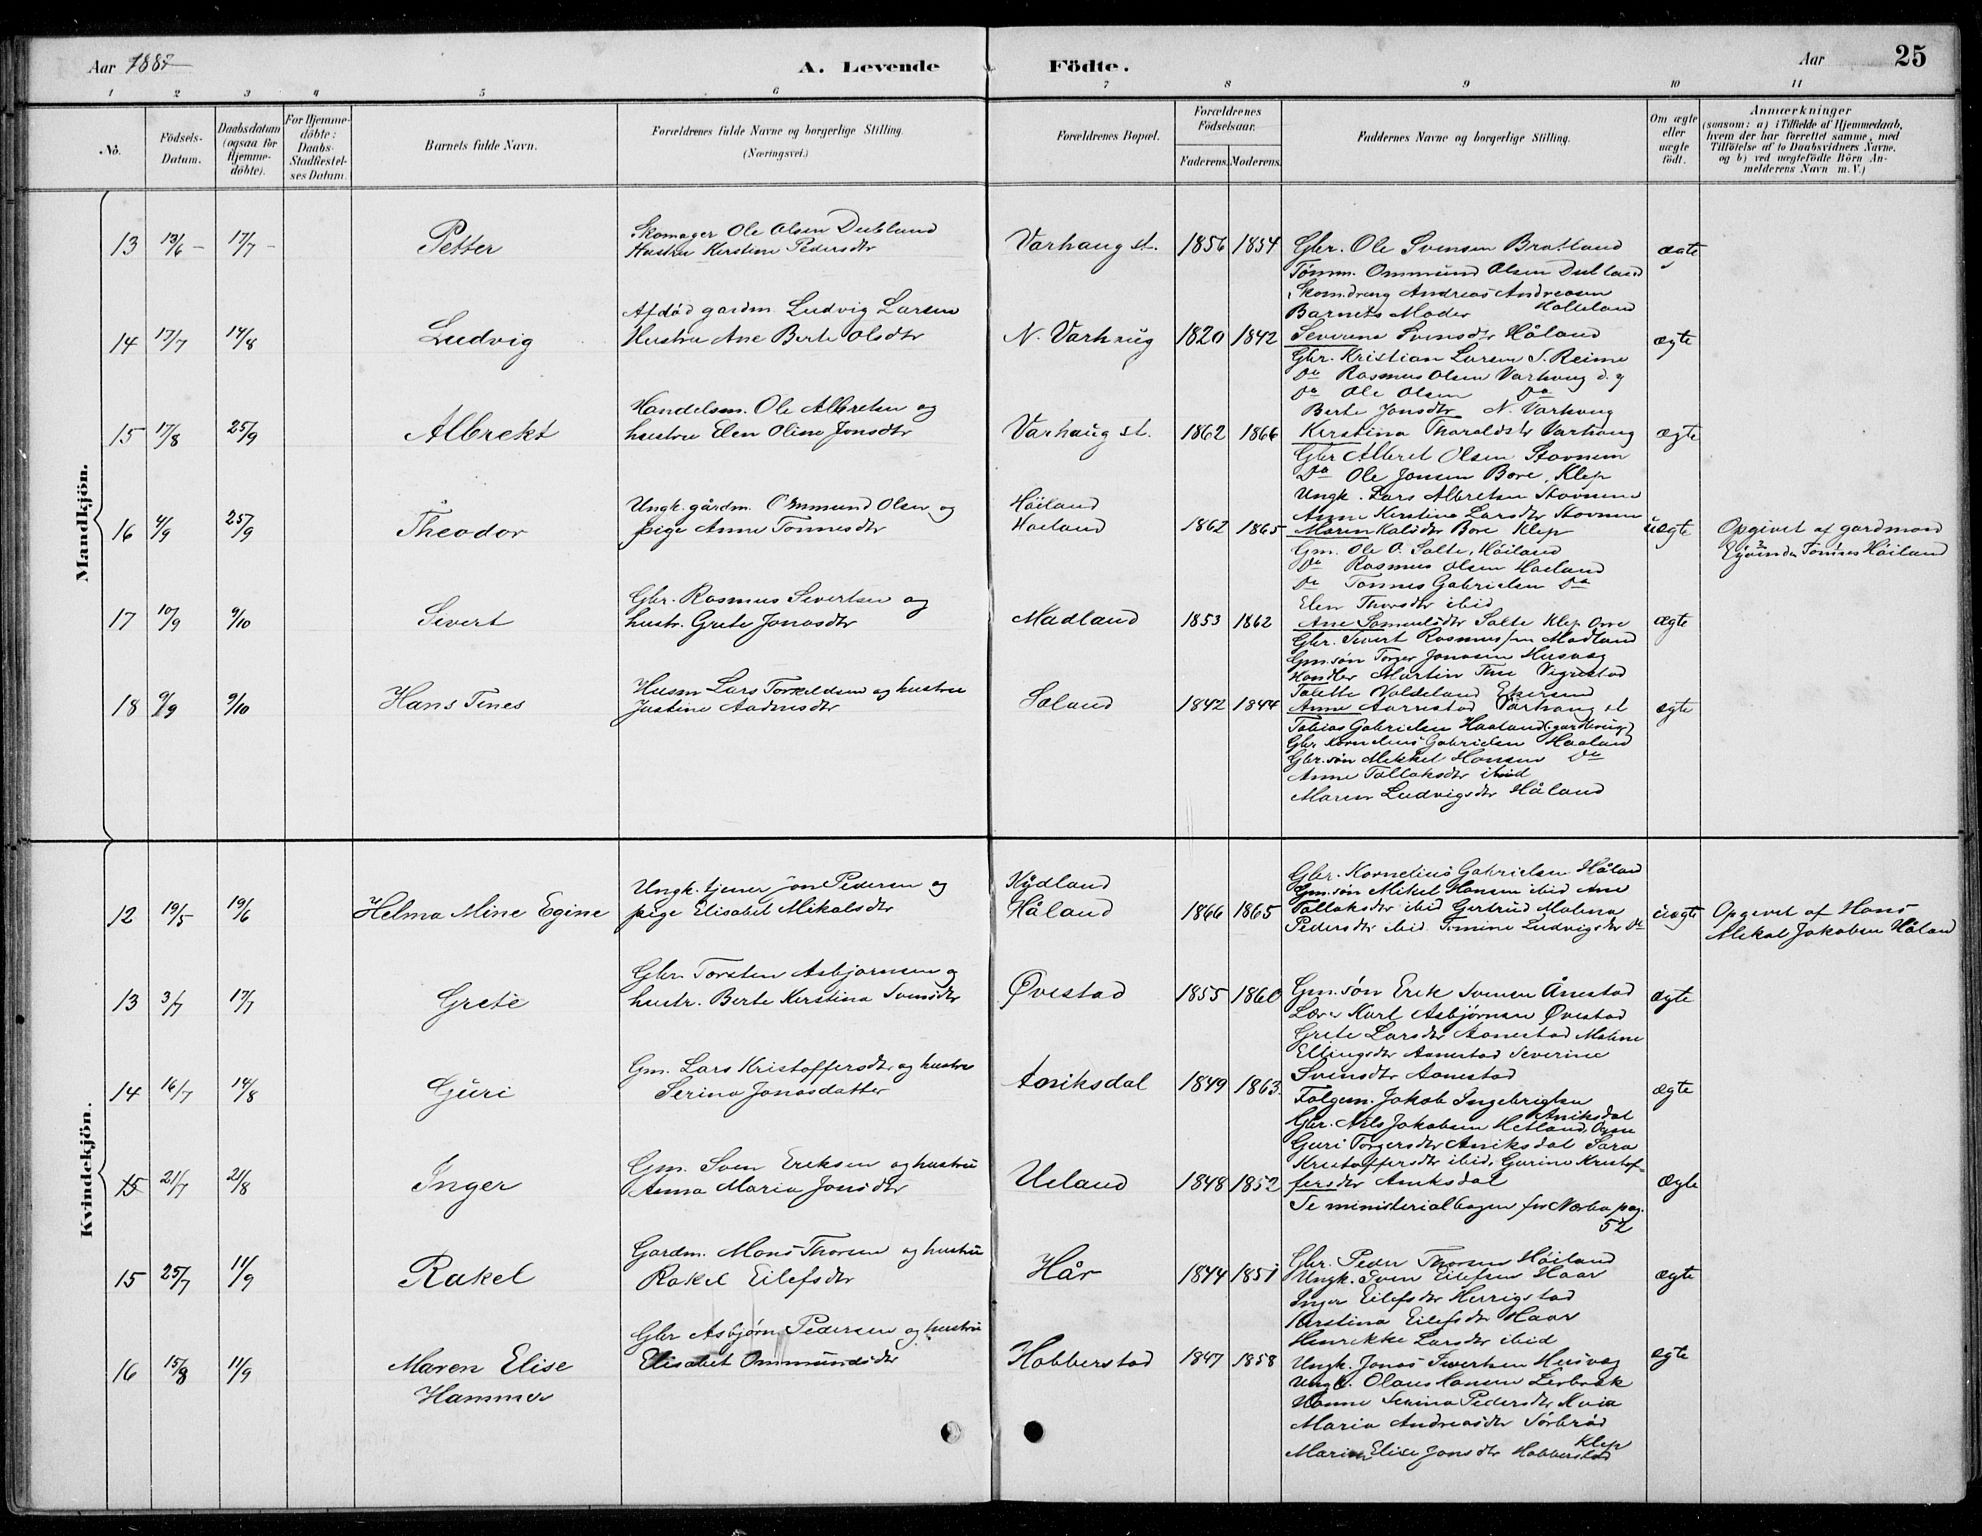 Aar 1887
A. Levende Födte.
Aar 25
1 2 3 4 5 6 7 8 9 10 11
No.
Födsels-Datum.
Daabsdatum (ogsaa for Hjemmedöbte).
For Hjemmedöbte: Daabs-Stadfæstelses Datum.
Barnets fulde Navn.
Forældrenes fulde Navne og borgerlige Stilling.
(Næringsvei.)
Forældrenes Bopæl.
Forældrenes Födselsaar.
Faderens. Moderens.
Faddernes Navne og borgerlige Stilling.
Om ægte eller uægte födt.
Anmærkninger
(saasom: a) i Tilfælde af Hjemmedaab, hvem der har forrettet samme, med Tilföielse af to Daabsvidners Navne. og b) ved uægtefödte Börn Anmelderens Navn m. V.)
Mandkjön.
13 13/6 - 17/7 - Petter
Skomager Ole Olsen Dubland
Hustru Kerstine Pedersdtr
Varhaug st. 1856 1854
Gbr. Ole Svensen Bratland
Tømm. Ommund Olsen Dubland
Skom.dreng Andreas Andreasen
Holteland
Barnets Moder
Severine Svensdtr Håland
ægte
14 17/7 14/8 Ludvig
Afdød gardm. Ludvig Larsen
Hustru Ane Berte Olsdtr
N. Varhaug 1820 1842
Gbr. Kristian Larsen S. Reime
Do Rasmus Olsen Varhaug d. y
Do Ole Olsen Do
Berte Jonsdtr N. Varhaug
Kerstina Tharaldsdtr Varhaug
ægte
15 17/8 25/9 Albrekt
Handelsm. Ole Albretsen og
hustru Elen Oline Jonsdtr
Varhaug st. 1862 1866
Gbr Albret Olsen Stavnem
Do Ole Jonsen Bore, Klep
Ungk. Lars Albretsen Stavnem
Anne Kerstine Larsdtr Stavnem
Maren Kalsdtr Bore Klep
ægte
16 4/9 25/9 Theodor
Ungk. gårdm. Ommund Olsen og
pige Anne Tønnesdtr
Høiland
Haaland 1862 1865
Gm. Ole O. Salte, Høiland
Do Rasmus Olsen Haaland
Do Tønnes Gabrielsen Do
Elen Thorsdtr ibid
Ane Samuelsdtr Salte Klep Orre
uægte
Opgivet af gardmand
Tønnes Høiland
17 10/9 9/10 Sivert
Gbr. Rasmus Sivertsen og
hustr. Grete Jonasdtr
Madland 1853 1862
Gbr. Sivert Rasmussen Madland
Gm.søn Torger Jonasen Husvæg
Handler Martin Tue Vigrestad
Talette Valdeland Ekersund
Anne Aarrestad Varhaug st
ægte
18 9/9 9/10 Hans Tines
Husm Lars Torkeldsen og hustru
Justine Aadnesdtr
Søland 1842 1844
Tobias Gabrielsen Haaland (gardbrug)
Gbr Kornelius Gabrielsen Haaland
Gbr.søn Mikkel Hansen Do
Anne Tollaksdtr ibid
Maren Ludvigsdtr Håland
ægte
Kvindekjön.
12 19/5 19/6 Helma Mine Egine
Ungk. tjener Jon Pedersen og
pige Elisabet Mikalsdtr
Kydland
Håland 1866 1865
Gbr. Kornelius Gabrielsen Håland
Gm.søn Mikel Hansen ibid Ane
Tollaksdtr ibid Gertrud Malena
Pedersdtr ibid. Tomine Ludvigsdtr Do
uægte
Opgivet af Hans
Mikal Jakobsen Håland
13 3/7 17/7 Grete
Gbr. Torsten Asbjørnsen og
hustr. Berte Kerstina Svensdtr
Øvestad 1855 1860
Gm.søn Erik Svensen Ånestad
Lærer Karl Asbjørnsen Øvestad
Grete Larsdtr Aanestad Malene
Ellingsdtr Aanestad Severine
Svensdtr Aanestad
ægte
14 16/7 14/8 Guri
Gm. Lars Kristoffersdtr og hustru
Serina Jonasdatter
Aniksdal 1849 1863.
Følgem. Jakob Ingebrigtsen
Aniksdal
Gbr. Nils Jakobsen Hetland, Ogne
Guri Torgersdtr Aniksdal Sara
Kristoffersdtr ibid. Gurine Kristof-
fersdtr Aniksdal
ægte
15 21/7 21/8 Inger
Gm. Sven Eriksen og hustru
Anna Maria Jonsdtr
Ueland 1848 1852
Se ministerialbogen for Nærbø pag.
52
ægte
15 25/7 11/9 Rakel
Gardm. Mons Thorsen og hustru
Rakel Eilefsdtr
Hår 1844 1851
Gbr. Peder Thorsen Høiland
Ungk. Sven Eilefsen Haar
Inger Eilefsdtr Herrigstad
Kerstina Eilefsdtr Haar
Henrikke Larsdtr ibid
ægte
16 15/8 11/9 Maren Elise
Hammer
Gbr Asbjørn Pedersen og hustru
Elisabet Ommundsdtr
Hobberstad 1847 1858
Ungk. Jonas Sivertsen Husvæg
Ungk. Olaus Hansen Lerbrek
Hanne Serina Pedersdtr Kvia
Maria Andreasdtr Sørbrød
Klep
Maren Elise Jonsdtr Hobberstad
ægte